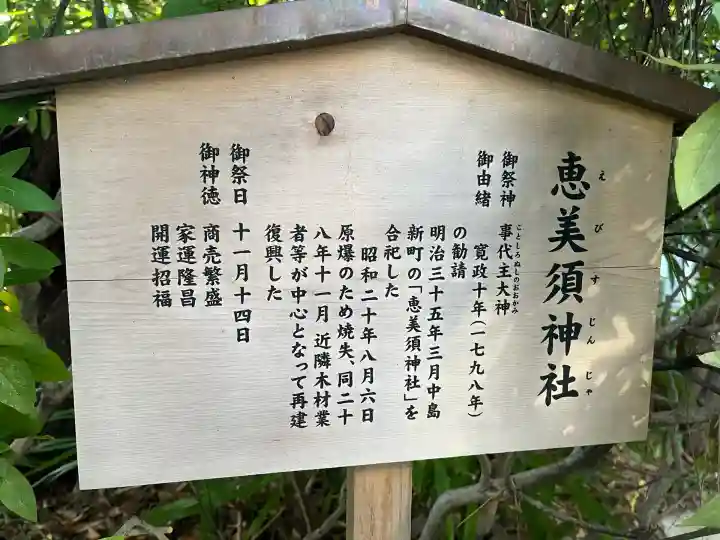 恵美須神社
えびすじんじゃ
御祭神 事代主大神
ことしろぬしのおおかみ
御由緒 寛政十年(一七九八年)
の勧請
明治三十五年三月中島
新町の「恵美須神社」を
合祀した
昭和二十年八月六日
原爆のため焼失、同二十
八年十一月 近隣木材業
者等が中心となって再建
復興した
御祭日 十一月十四日
御神徳 商売繁盛
家運隆昌
開運招福